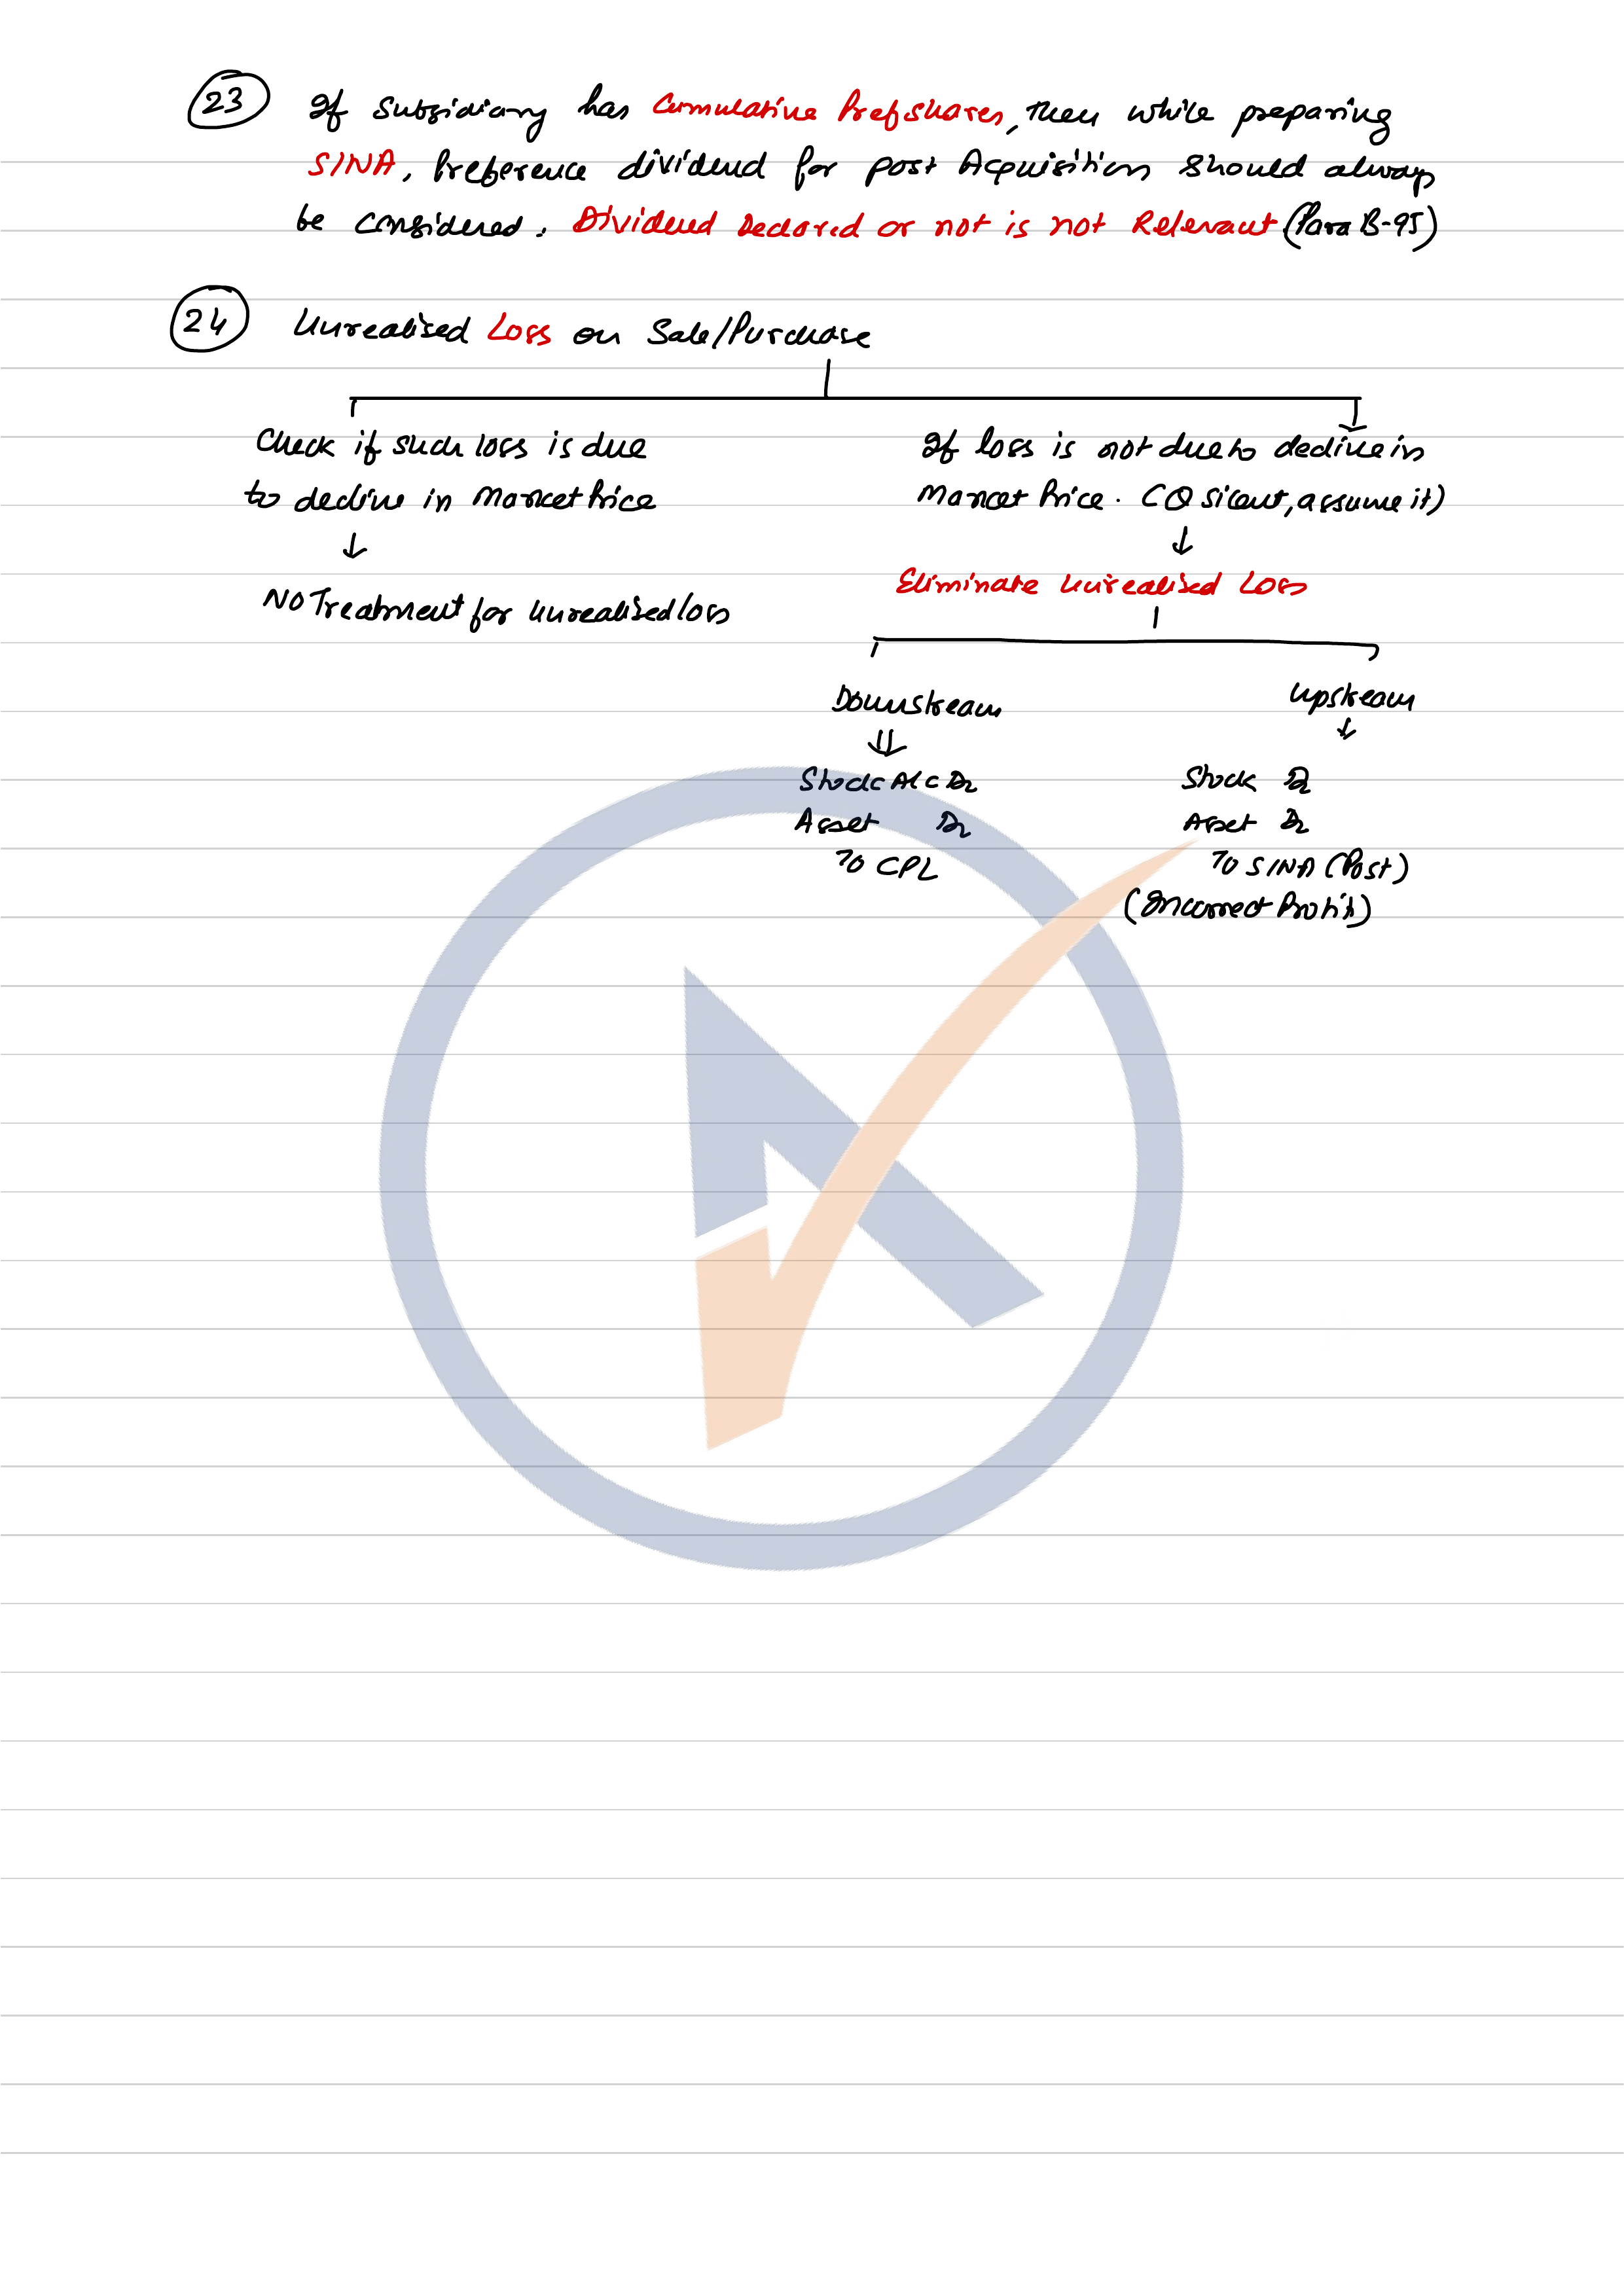 23 If Subsidiary has Cumulative Pref shares, then while preparing
SINA, Preference dividend for post Acquisition should always
be considered. Dividend Declared or not is not Relevant (Para B-95)
24 Unrealised Loss on Sale/Purchase
Check if such loss is due
to decline in Market Price
↓
No Treatment for unrealised loss
If loss is not due to decline in
Market Price. (Q silent, assume it)
↓
Eliminate Unrealised Loss
Downstream
⇓
Stock A/c Dr
Asset Dr
To CPL
Upstream
↓
Stock Dr
Asset Dr
To SINA (Post)
(Incorrect Profit)